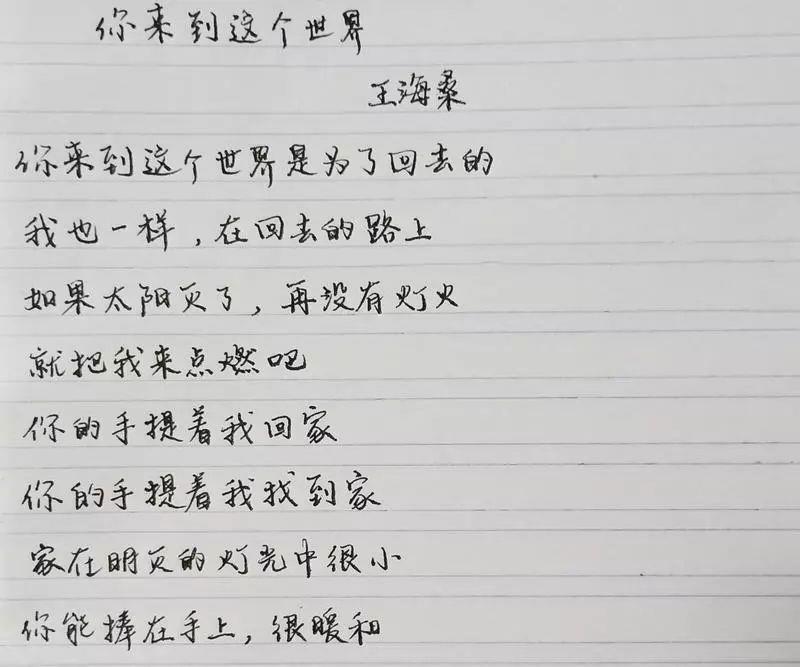 你来到这个世界
王海桑
你来到这个世界是为了回去的
我也一样，在回去的路上
如果太阳灭了，再没有灯火
就把我来点燃吧
你的手提着我回家
你的手提着我找到家
家在明灭的灯光中很小
你能捧在手上，很暖和